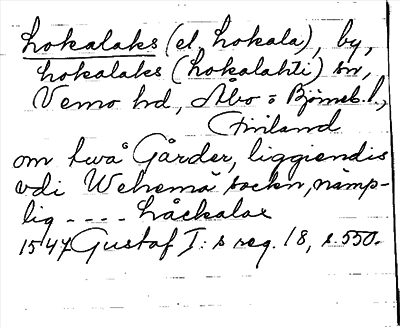 Lokalaks (el. Lokala), by,
Lokalaks (Lokalahti) sn,
Vemo hd, Åbo o Björneb. l.,
Finland
om twå Gårder, liggiendis
vdi Wehema sockn, nämp-
lig - - - - Låckalax
1547 Gustaf I:s reg. 18, s. 550.